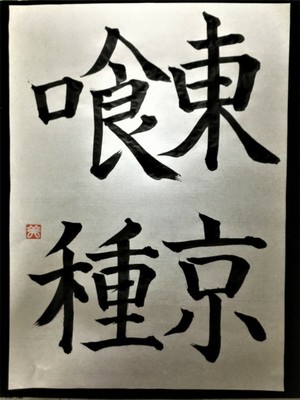 東京
喰種